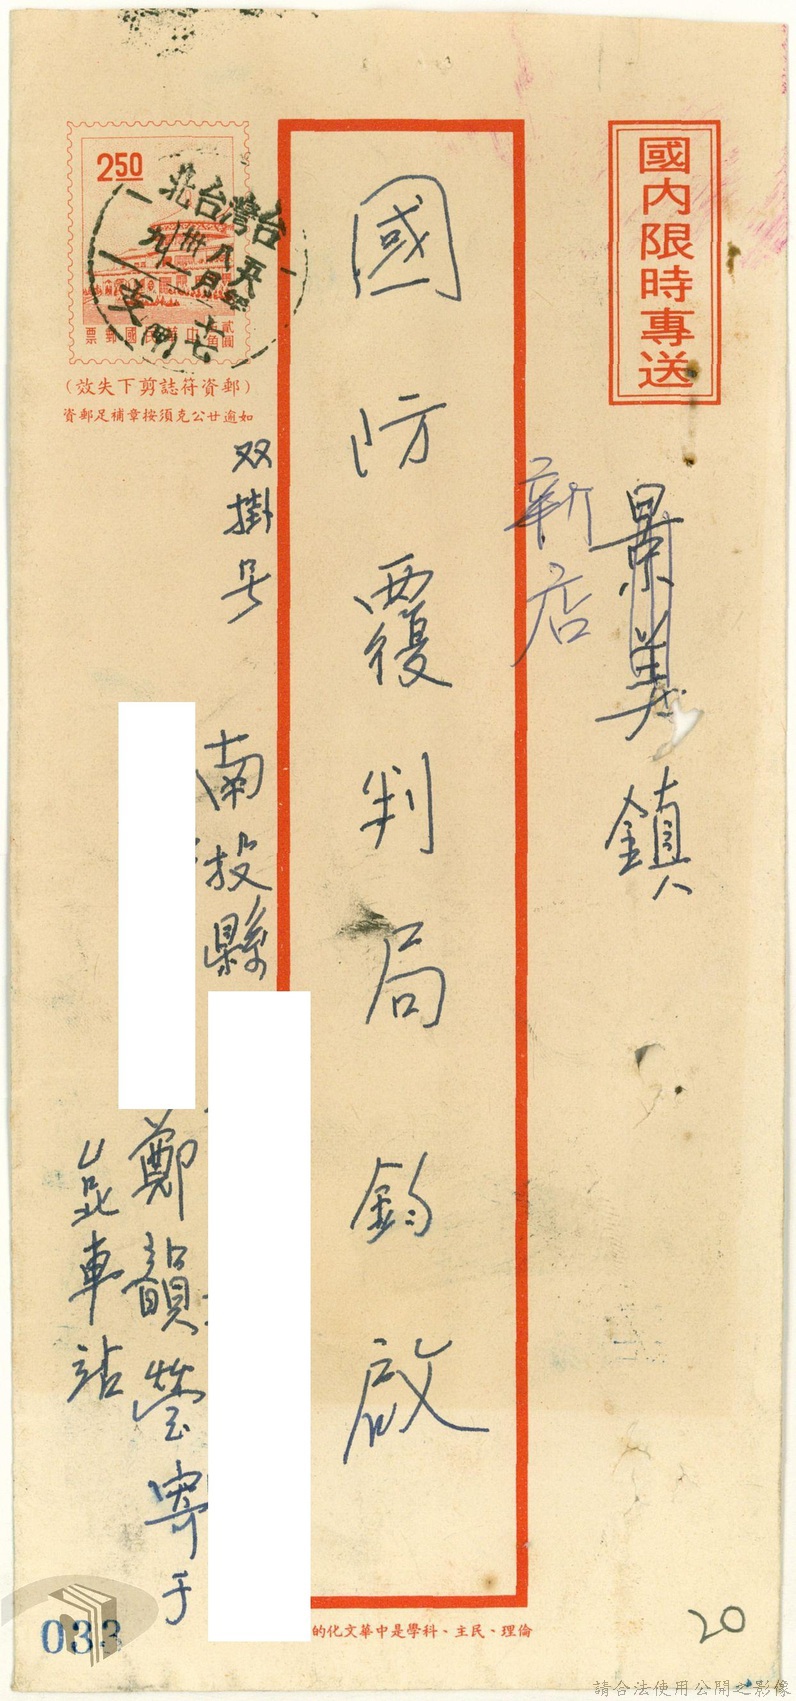 國內限時專送
景美鎮
新店
國防覆判局鈞啟
2.50
台灣台北
五八年
八月
貳圓
中華民國郵票
（郵資符誌剪下失效）
如逾廿公克須按章補足郵資
双掛号
南投縣
鄭韻瑩寄于
崑車站
倫理、民主、科學是中華文化的
033
20
請合法使用公開之影像